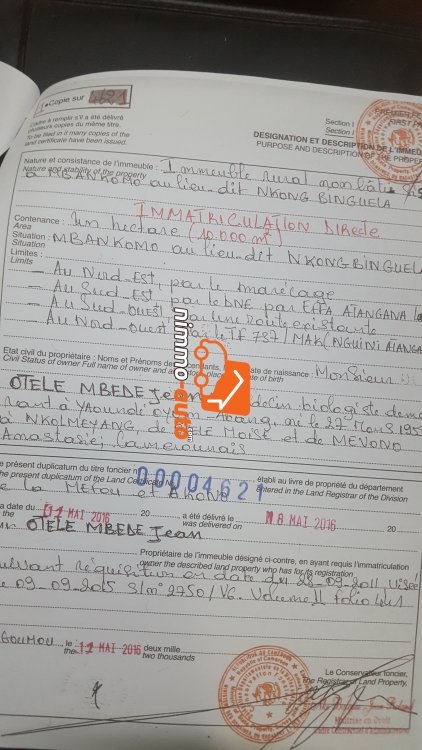 Copie sur 4621
Cadre à remplir s'il a été délivré
plusieurs copies du même titre.
To be filled in if many copies of the
land certificate have been issued.
Section I
Section I
DESIGNATION ET DESCRIPTION DE L'IMMEU
PURPOSE AND DESCRIPTION OF THE PROPER
Nature et consistance de l'immeuble : Immeuble rural non bâti
Nature and stability of the property
à MBANKOMO au lieu-dit NKONG BINGUELA
IMMATRICULATION DIRecte
Contenance : Un hectare (10.000 m²)
Area
Situation : MBANKOMO au lieu-dit NKONGBINGUELA
Situation
Limites :
Limits
- Au Nord-Est, par le marécage
- Au Sud-Est par le DNE par EFFA ATANGANA
- Au Sud-Ouest par une route existante
- Au Nord-Ouest par le TF 787 / MAK (NGUINI ATANGA
Etat civil du propriétaire : Noms et Prénoms date de naissance : Monsieur
Civil Status of owner Full name of owner and of birth
OTELE MBEDE Jean médecin biologiste deme
rant à YAOUNDE né le 27 Mars 195
à NKOLMEYANG, de Moïse et de MENONO
Anastasie; Camerounais
e présent duplicatum du titre foncier n° 00004621 établi au livre de propriété du département
he present duplicatum of the Land Certificate N° entered in the Land Registrar of the Division
de la MEFOU et AKONO
a date du 01 MAI 2016 20 a été délivré le 18 MAI 2016 20
the was delivered on
Mr OTELE MBEDE Jean
Propriétaire de l'immeuble désigné ci-contre, en ayant requis l'immatriculation
owner the described land property who has for its registration
suivant réquisition en date du 28-09-2011 Visée
le 09-09-2015 S/n° 2750/V6. Volume II folio
GOUMOU le : 12 MAI 2016 deux mille
the two thousands
Le Conservateur foncier,
The Registrar of Land Property,
nimmo-auto.com